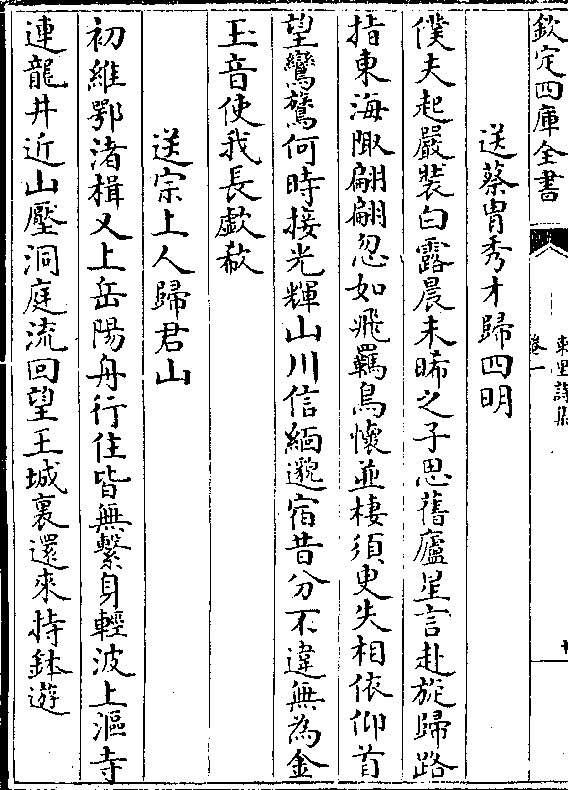 欽定四庫全書
卷一
送蔡胄秀才歸四明
僕夫起嚴裝白露晨未晞之子思舊廬星言赴旋歸路
指東海陬翩翩忽如飛羈鳥懷並棲須臾失相依仰首
望鸞鶱何時接光輝山川信緬邈宿昔分不違無為金
玉音使我長歔欷
送宗上人歸君山
初維鄂渚楫又上岳陽舟行住皆無繫身輕波上漚寺
連龍井近山壓洞庭流回望王城裏還來持鉢遊